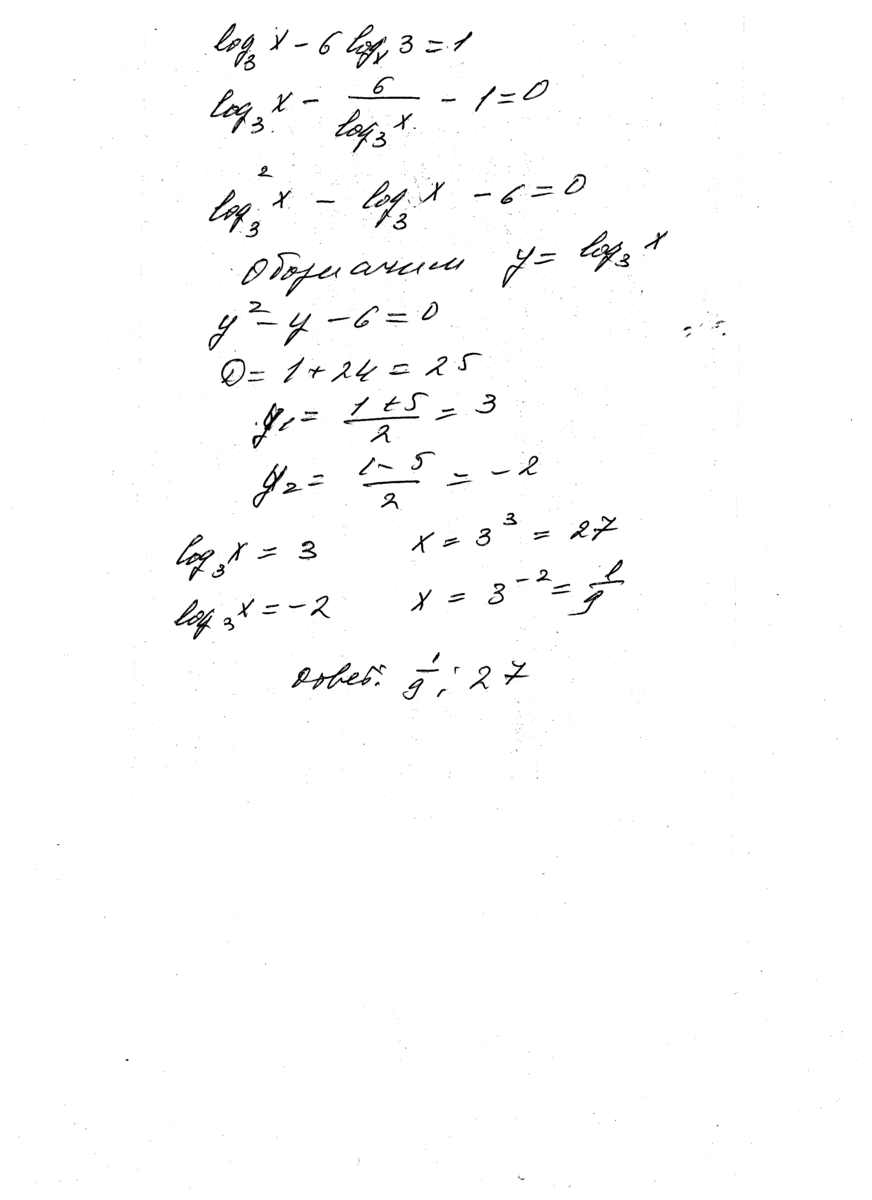 log₃ x − 6 logₓ 3 = 1
log₃ x − 6/(log₃ x) − 1 = 0
log₃² x − log₃ x − 6 = 0
Обозначим y = log₃ x
y² − y − 6 = 0
D = 1 + 24 = 25
y₁ = (1 + 5)/2 = 3
y₂ = (1 − 5)/2 = −2
log₃ x = 3 x = 3³ = 27
log₃ x = −2 x = 3⁻² = 1/9
Ответ: 1/9; 27